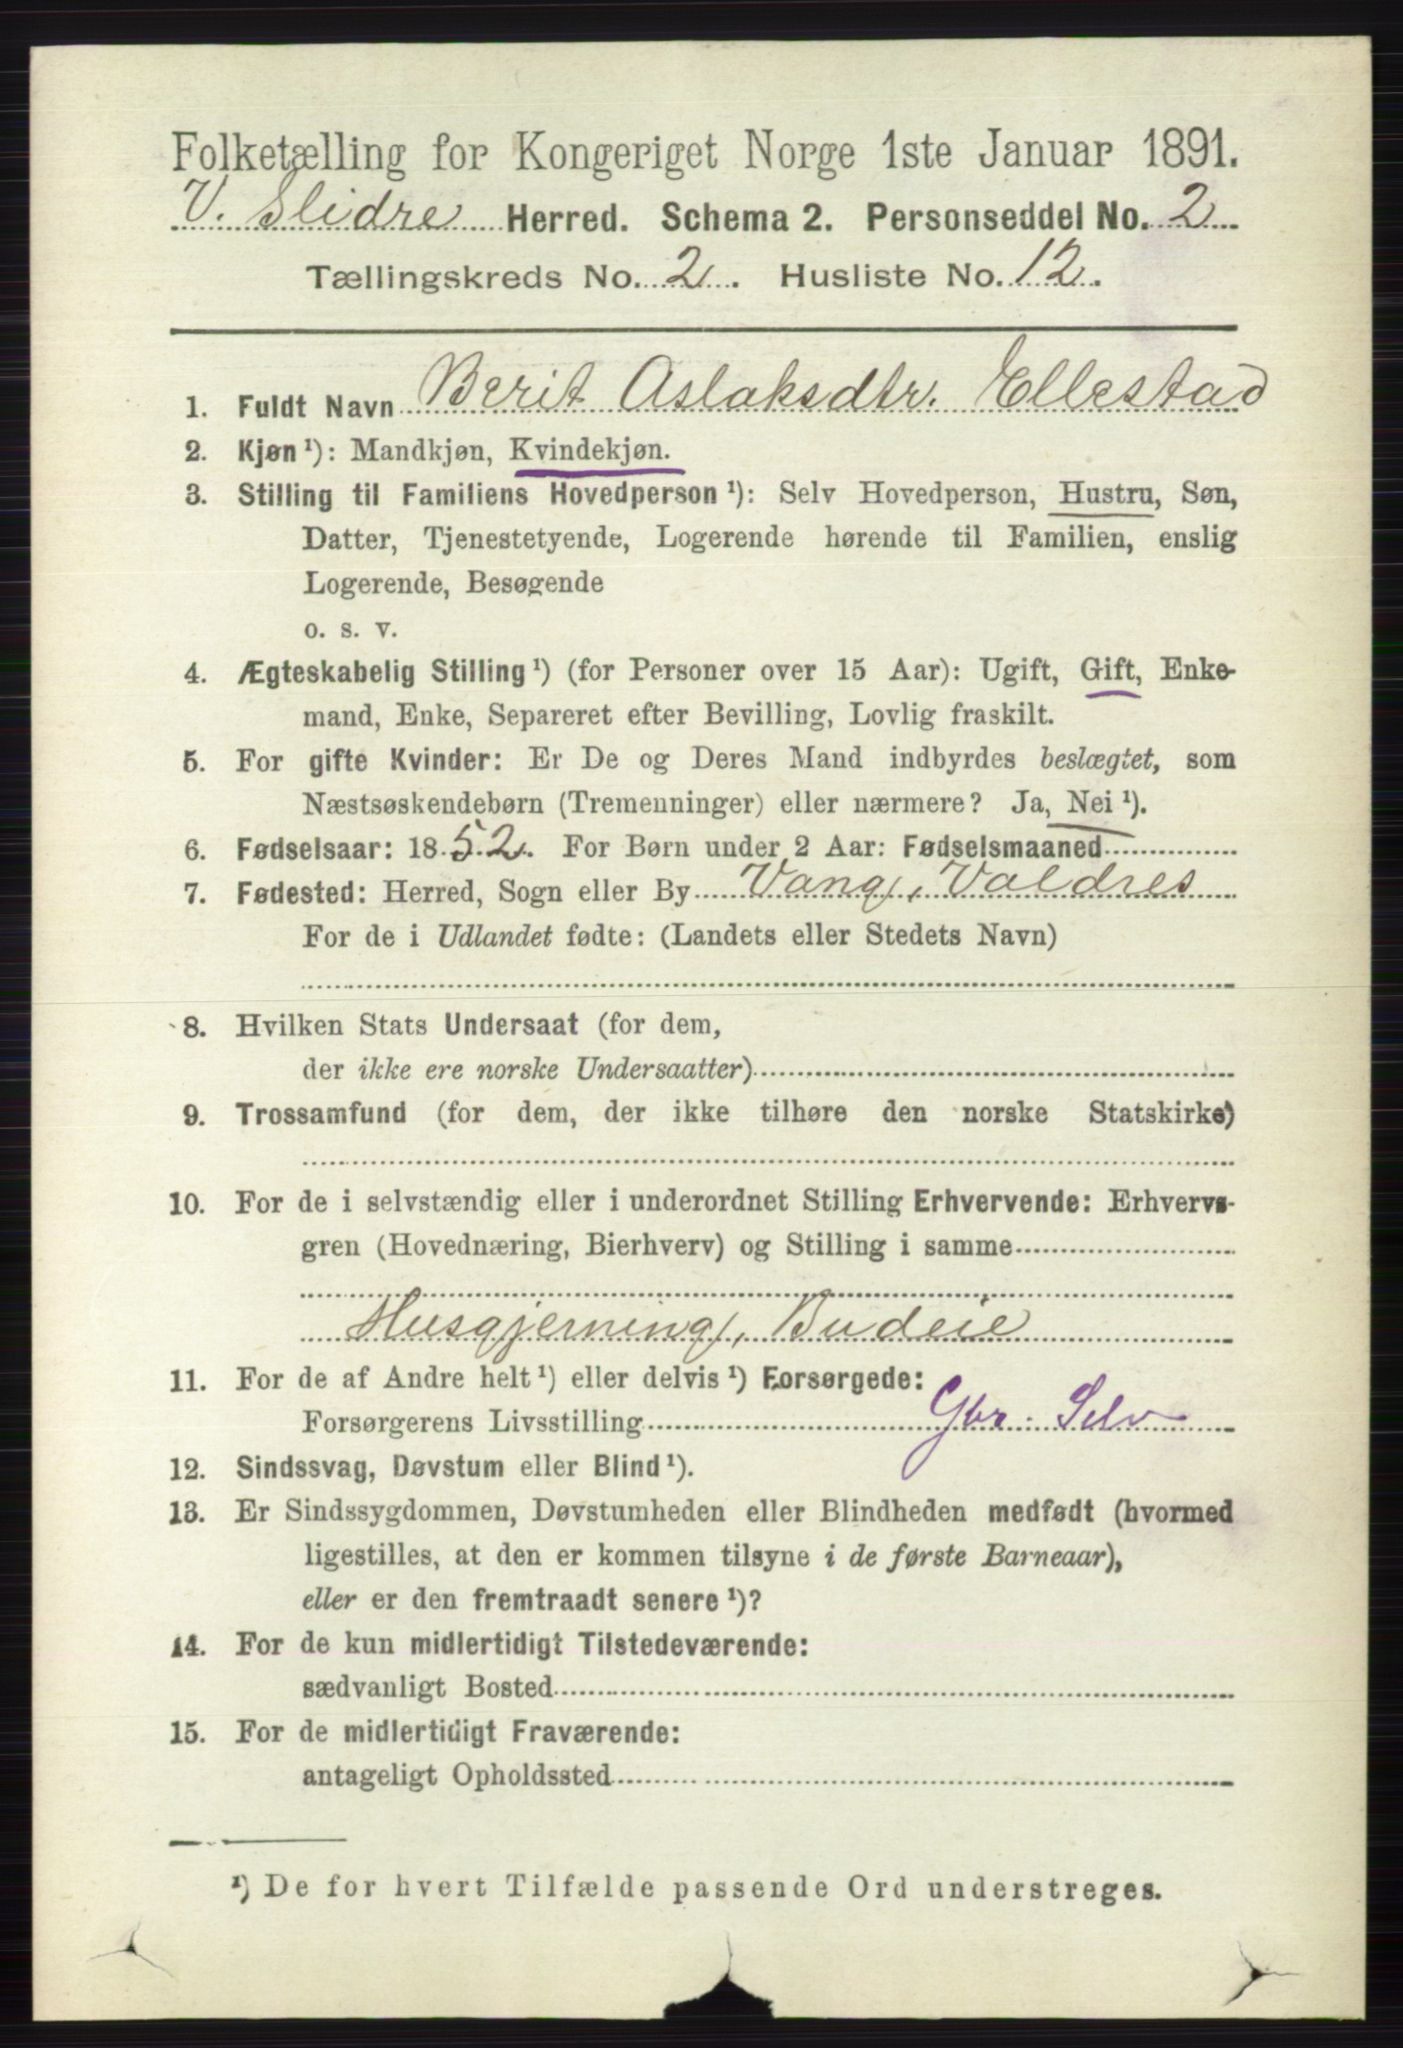 Folketælling for Kongeriget Norge 1ste Januar 1891.
V. Slidre Herred. Schema 2. Personseddel No. 2
Tællingskreds No. 2. Husliste No. 12.
1. Fuldt Navn Berit Aslaksdtr. Ellestad
2. Kjøn ¹): Mandkjøn, Kvindekjøn.
3. Stilling til Familiens Hovedperson ¹): Selv Hovedperson, Hustru, Søn,
Datter, Tjenestetyende, Logerende hørende til Familien, enslig
Logerende, Besøgende
o. s. v.
4. Ægteskabelig Stilling ¹) (for Personer over 15 Aar): Ugift, Gift, Enke-
mand, Enke, Separeret efter Bevilling, Lovlig fraskilt.
5. For gifte Kvinder: Er De og Deres Mand indbyrdes beslægtet, som
Næstsøskendebørn (Tremenninger) eller nærmere? Ja, Nei ¹).
6. Fødselsaar: 1852. For Børn under 2 Aar: Fødselsmaaned
7. Fødested: Herred, Sogn eller By Vang, Valdres
For de i Udlandet fødte: (Landets eller Stedets Navn)
8. Hvilken Stats Undersaat (for dem,
der ikke ere norske Undersaatter)
9. Trossamfund (for dem, der ikke tilhøre den norske Statskirke)
10. For de i selvstændig eller i underordnet Stilling Erhvervende: Erhvervs-
gren (Hovednæring, Bierhverv) og Stilling i samme
Husgjerning, Budeie
11. For de af Andre helt ¹) eller delvis ¹) Forsørgede:
Forsørgerens Livsstilling Gbr. Selv
12. Sindssvag, Døvstum eller Blind ¹).
13. Er Sindssygdommen, Døvstumheden eller Blindheden medfødt (hvormed
ligestilles, at den er kommen tilsyne i de første Barneaar),
eller er den fremtraadt senere ¹)?
14. For de kun midlertidigt Tilstedeværende:
sædvanligt Bosted
15. For de midlertidigt Fraværende:
antageligt Opholdssted
¹) De for hvert Tilfælde passende Ord understreges.